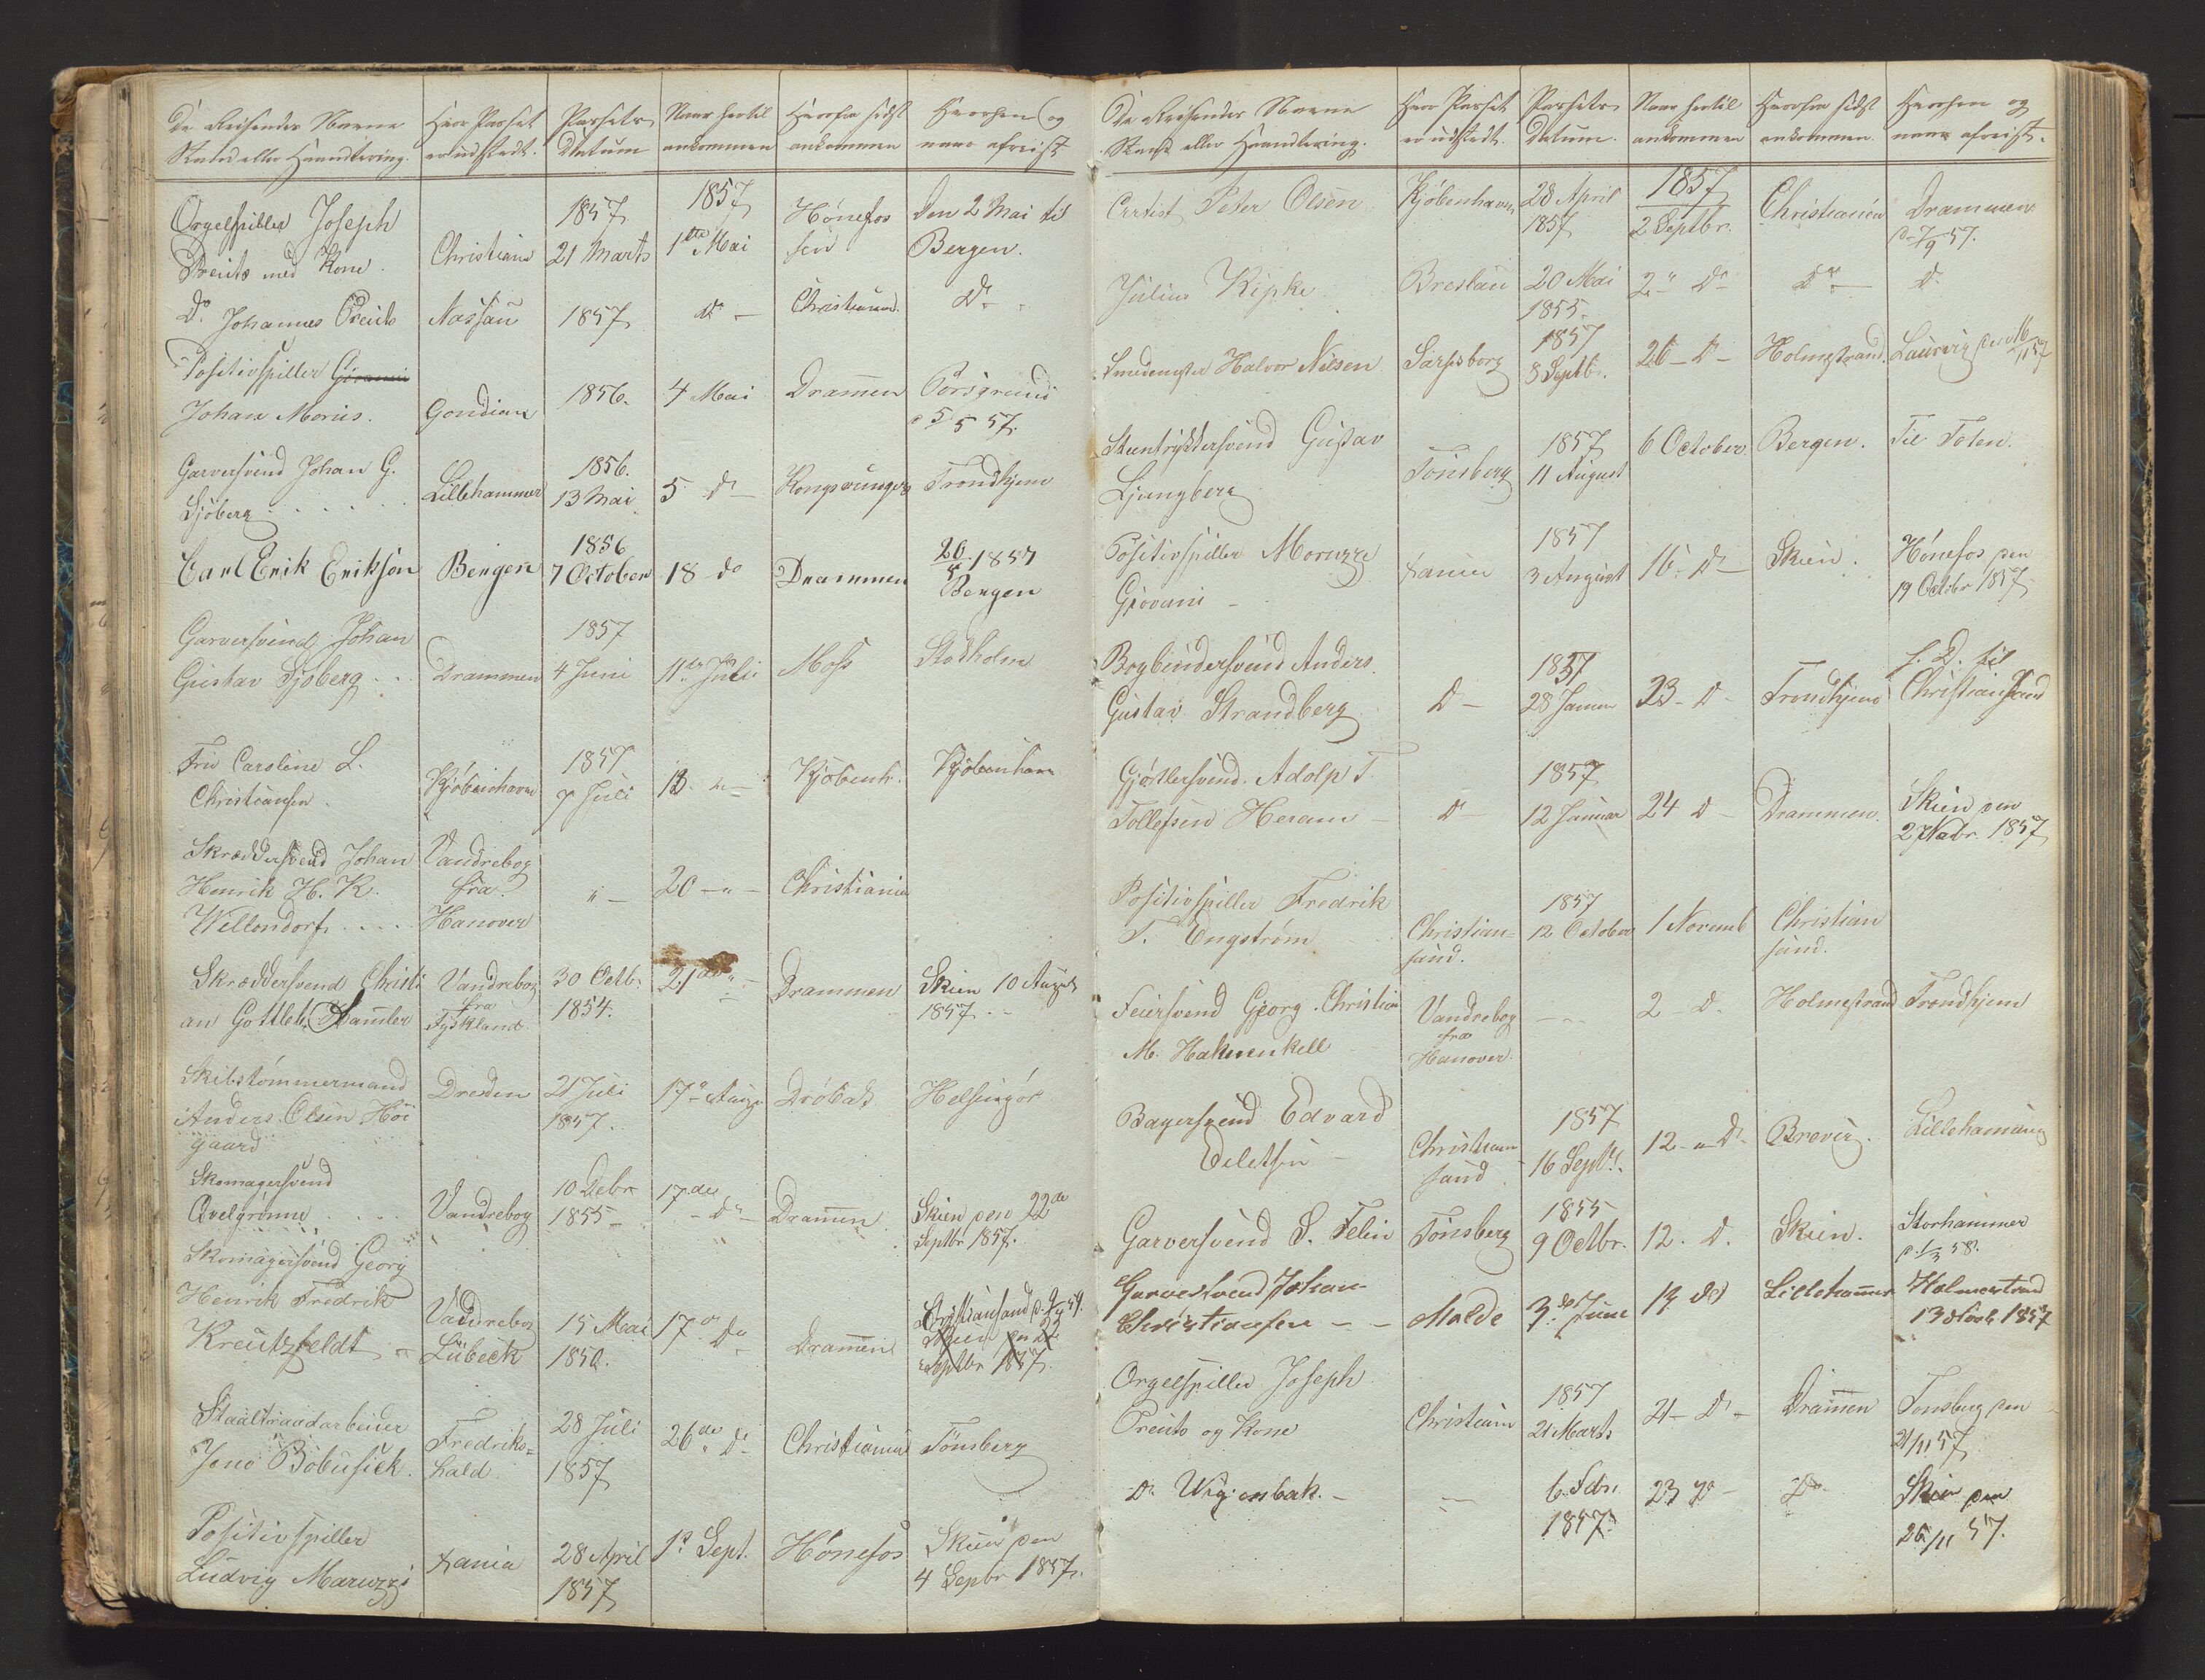 De Reisendes Navne Hvor Passet Passets Naar hertil Hvorfra sidst Hvorhen og
Stand eller Haandtering. er udstedt. Datum ankommen ankommen naar afreist
1857 1857
Orgelspiller Joseph Hønefos Den 2 Mai til
Preuts med Kone. Christiania 21 Marts 1ste Mai Bergen.
Do Johannes Preuts Nassau 1857 do - Christiania. Do
Positivspiller Giovanni
Johan Morius. Gondian 1856. 4 Mai Drammen Porsgrund
5/5 57.
Garversvend Johan G. 1856.
Sjöberg Lillehammer 13 Mai 5 do Kongsvinger Trondhjem
1856 26/5 1857
Carl Erik Erikson Bergen 7 October 18 do Drammen Bergen
Garversvend Johan 1857
Gustav Sjöberg Drammen 4 Juni 11te Juli Moss Stokholm
Fru Caroline L. 1857
Christiansen. Kjöbenhavn 9 Juli 13 Kjöbenh. Kjöbenhavn
Skræddersvend Johan Vandrebog
Henrik H. K. fra " 20 - " - Christiania
Wellendorf Hanover
Skræddersvend Christi Vandrebog 30 Octb. 21de " Drammen Skien 10 August
an Gottleb Hamler fra 1854. 1857.
Tyskland
Skibstömmermand Dresden 21 Juli 17 Aug. Dröbak Helsingör
Anders Olsen Höi 1857.
gaard
Skomagersvend 10 Debr 17de
Qvelgrönne Vandrebog 1855 do Drammen Skien den 22de
Septbr 1857.
Skomagersvend Georg
Henrik Fredrik Vandrebog 15 Mai 17 Do Drammen Christiansand
Kreutzfeldt Lübeck 1850. Skien den 22 Septbr 1857.
Staaltraadarbeider 28 Juli 26de do Christiania Tönsberg
Jono Bobusick. Fredriks=
hald 1857
Positivspiller
Ludvig Maruzzi Xania 28 April 1 Sept. Hönefos Skien den
1857 4 Sepbr 1857.
De Reisendes Navne Hvor Passet Passets Naar hertil Hvorfra sidst Hvorhen og
Stand eller Haandtering. er udstedt. Datum. ankommen ankommen. naar afreist.
1857
Artist Peter Olsen Kjöbenhavn 28 April Christiania Drammen
1857 2 Septbr. 7/9 57.
Julius Kipke Breslau 20 Mai 2 do do do
1855.
1857
Smedemester Halvor Nilsen Sarpsborg 8 Septb. 26 - do - Holmestrand Laurvig
Stentrykkersvend Gustav 1857 6 October Bergen. Til Toten.
Ljungberg Tönsberg 11 August
Positivspiller Moruzzi 1857
Giovani Xania 3 August 16 do Skien. Hönefos den
19 Octobr 1857
Bogbindersvend Anders 1857 s. D. til
Gustav Strandberg do 28 Januar 23 - do Trondhjem Christiansund
Gjörtlersvend Adolp T. 1857
Tollefsen Heram do 12 Januar 24 do Drammen. Skien den
2 Novbr. 1857
Positivspiller Fredrik 1857
T. Engström Christian= 12 October 1 Novemb Christian
sund. sund.
Feiersvend Georg Christian Vandrebog 2 do Holmestrand Trondhjem
M. Hakmenkell fra
Hanover.
Bagersvend Edvard 1857
Eeletsen Christian 16 Septb. 12 - do Brevig. Lillehammer
sund
1855
Garversvend S. Felin Tönsberg 9 Octbr. 12. do. Skien. Storhammer
1/3 58.
Garversvend Johan
Christiansen Molde 3de Juni do Lillehammer Holmestrand
13 Novb 1857
Orgelspiller Joseph 1857
Preuts og Kone Christiania 21 Marts 21 - do - Drammen Tonsberg den
21/11 57
Do Wigenbak. 6 Febr. 23 do do Skien den
1857. 26/11 57.